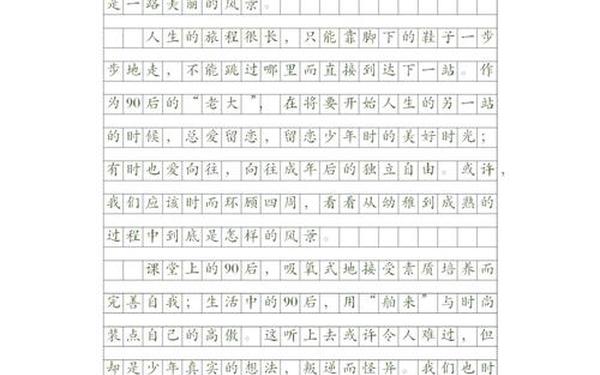 是一路美丽的风景。
人生的旅程很长，只能靠脚下的鞋子一步
步地走，不能跳过哪里而直接到达下一站。作
为90后的“老大”，在将要开始人生的另一站
的时候，总爱留恋，留恋少年时的美好时光；
有时也爱向往，向往成年后的独立自由。或许，
我们应该时而环顾四周，看看从幼稚到成熟的
过程中到底是怎样的风景。
课堂上的90后，吸氧式地接受素质培养而
完善自我；生活中的90后，用“舶来”与时尚
装点自己的高傲。这听上去或许令人难过，但
却是少年真实的想法，叛逆而怪异。我们也时